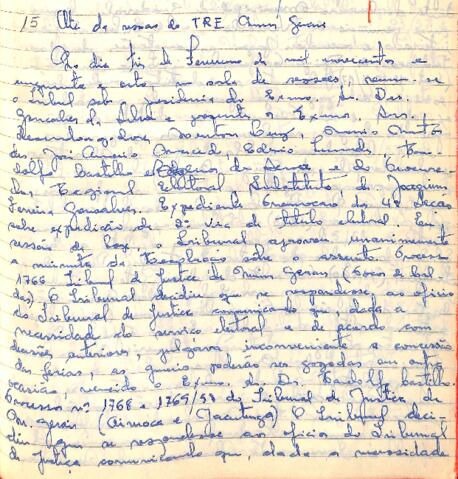 15 Ata da
do TRE Minas Gerais
No dia três de Fevereiro de mil novecentos e
cinquenta e oito, na sala de sessões, reuniu-se
o tribunal sob a presidência do Exmo. Sr. Des.
Gonçalves da Silva e presentes os Exmos. Srs.
desembargadores
José Americo Edesio Fernandes,
dolfo Castilho e e do Procura-
dor Regional Eleitoral, Substituto, dr. Joaquim
Ferreira Gonçalves. Expediente: da 4ª Secão
sobre expedição de 2ª via de titulo eleitoral. Em
sessão de hoje, o Tribunal aprovou unanimemente
a minuta de sobre o assunto. Processo
1766 Tribunal de Justiça de Minas Gerais (Poços de Cal-
das). O Tribunal decidiu que se respondesse ao oficio
do Tribunal de Justiça comunicando que, dada a
necessidade do serviço eleitoral e de acordo com
decisões anteriores, julgava inconveniente a concessão
das férias, as quais poderão ser gozadas em outra
ocasião, vencido o Exmo. Sr. Dr. Castilho.
Processos nº 1768 e 1769/58 do Tribunal de Justiça de
M. Gerais (Aimoré e Jacutinga) O Tribunal deci-
diu que se respondesse ao oficio do Tribunal
de Justiça comunicando que, dada a necessidade